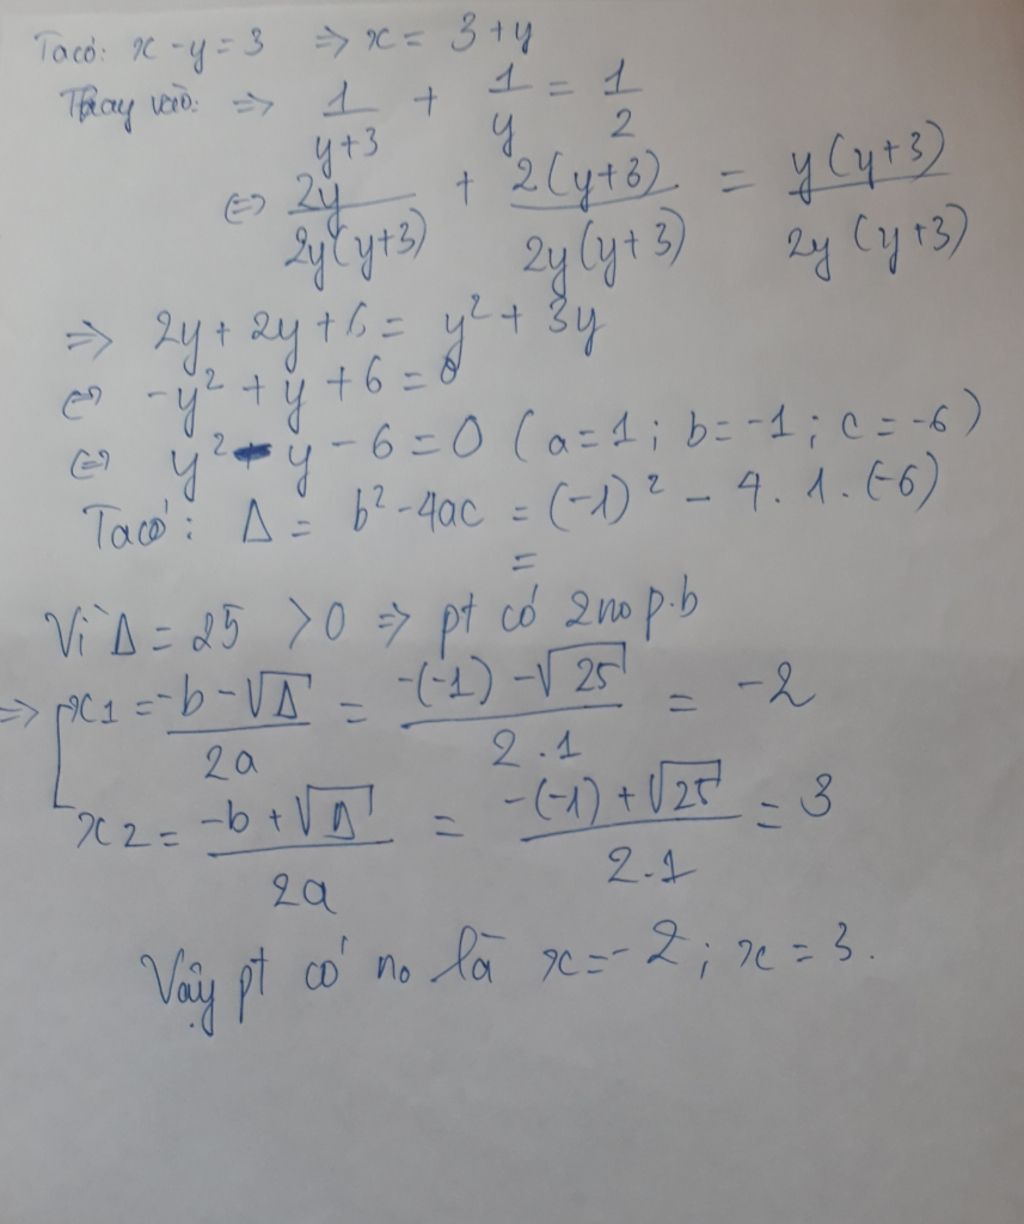 Ta có: x - y = 3 ⇒ x = 3 + y
Thay vào: ⇒ 1/(y+3) + 1/y = 1/2
⇔ 2y/(2y(y+3)) + 2(y+3)/(2y(y+3)) = y(y+3)/(2y(y+3))
⇒ 2y + 2y + 6 = y² + 3y
⇔ -y² + y + 6 = 0
⇔ y² - y - 6 = 0 (a = 1; b = -1; c = -6)
Ta có: Δ = b² - 4ac = (-1)² - 4. 1. (-6)
=
Vì Δ = 25 > 0 ⇒ pt có 2 no p.b
⇒ [ x1 = (-b - √Δ)/2a = (-(-1) - √25)/(2.1) = -2
x2 = (-b + √Δ)/2a = (-(-1) + √25)/(2.1) = 3
Vậy pt có no là x = -2; x = 3.